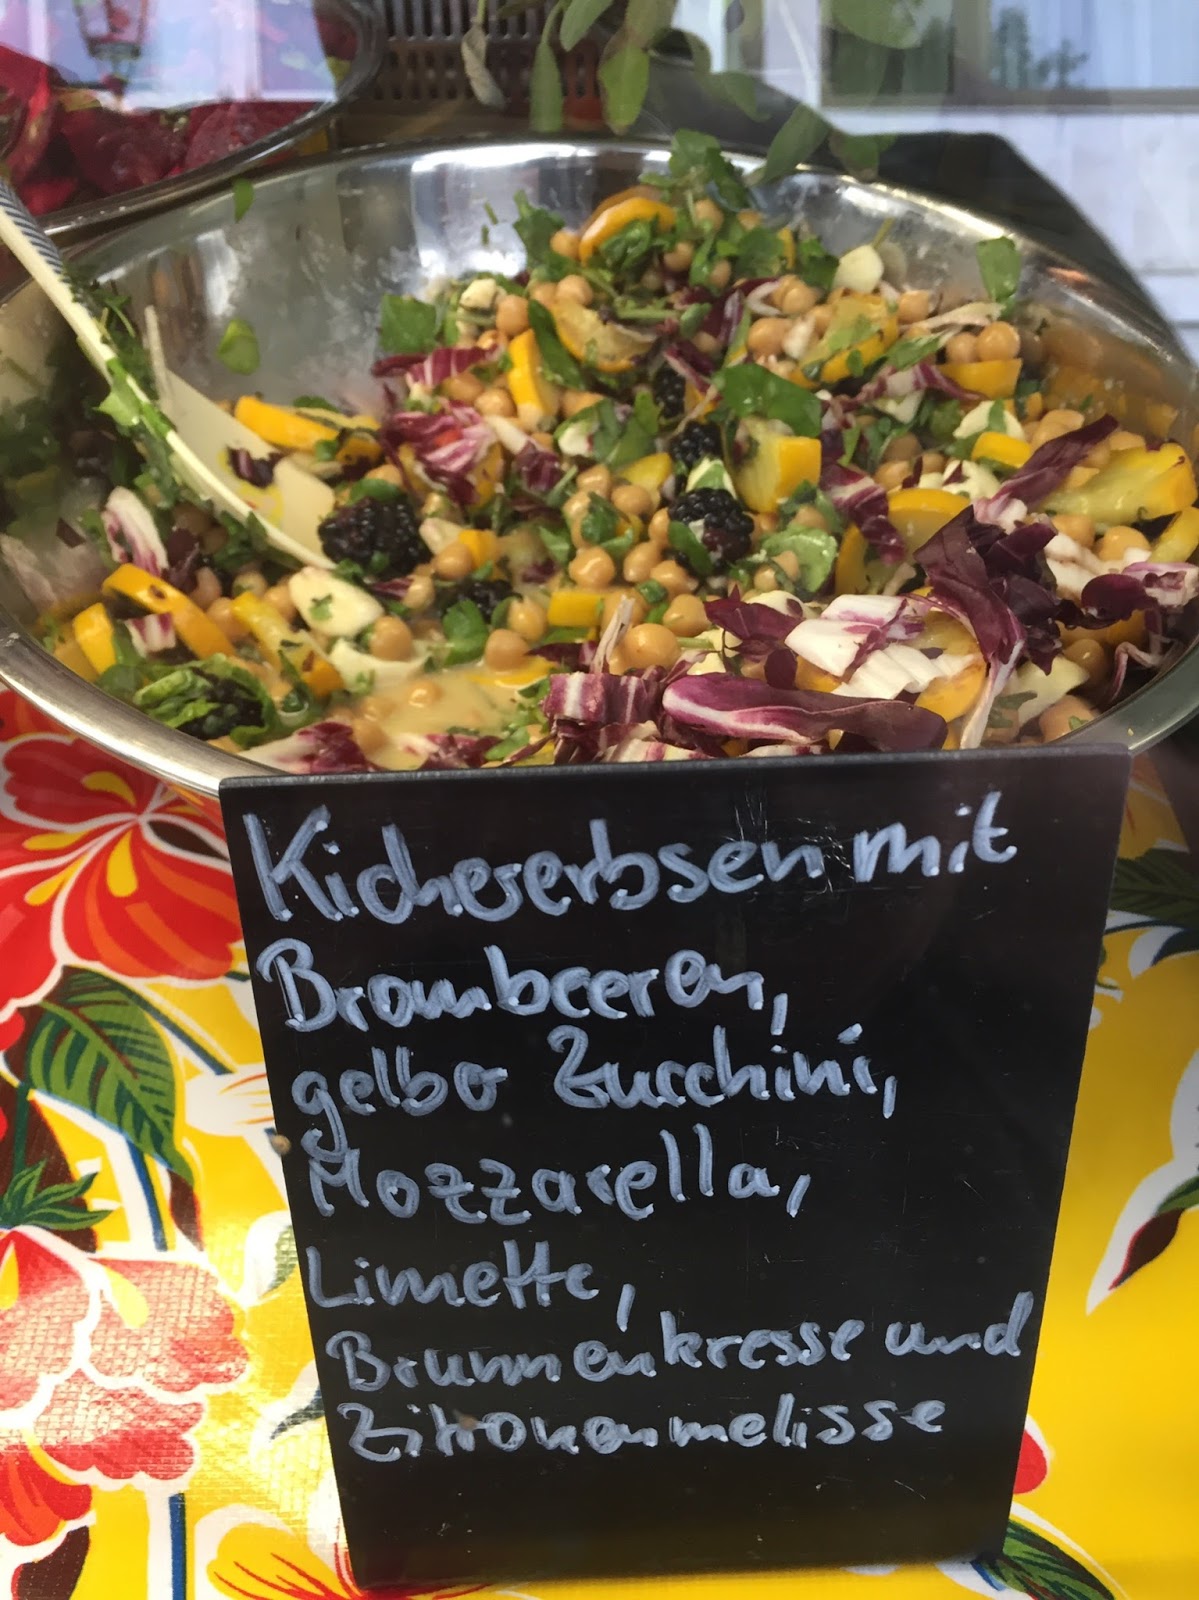 Kichererbsen mit
Brombeeren,
gelbe Zucchini,
Mozzarella,
Limette,
Brunnenkresse und
Zitronenmelisse